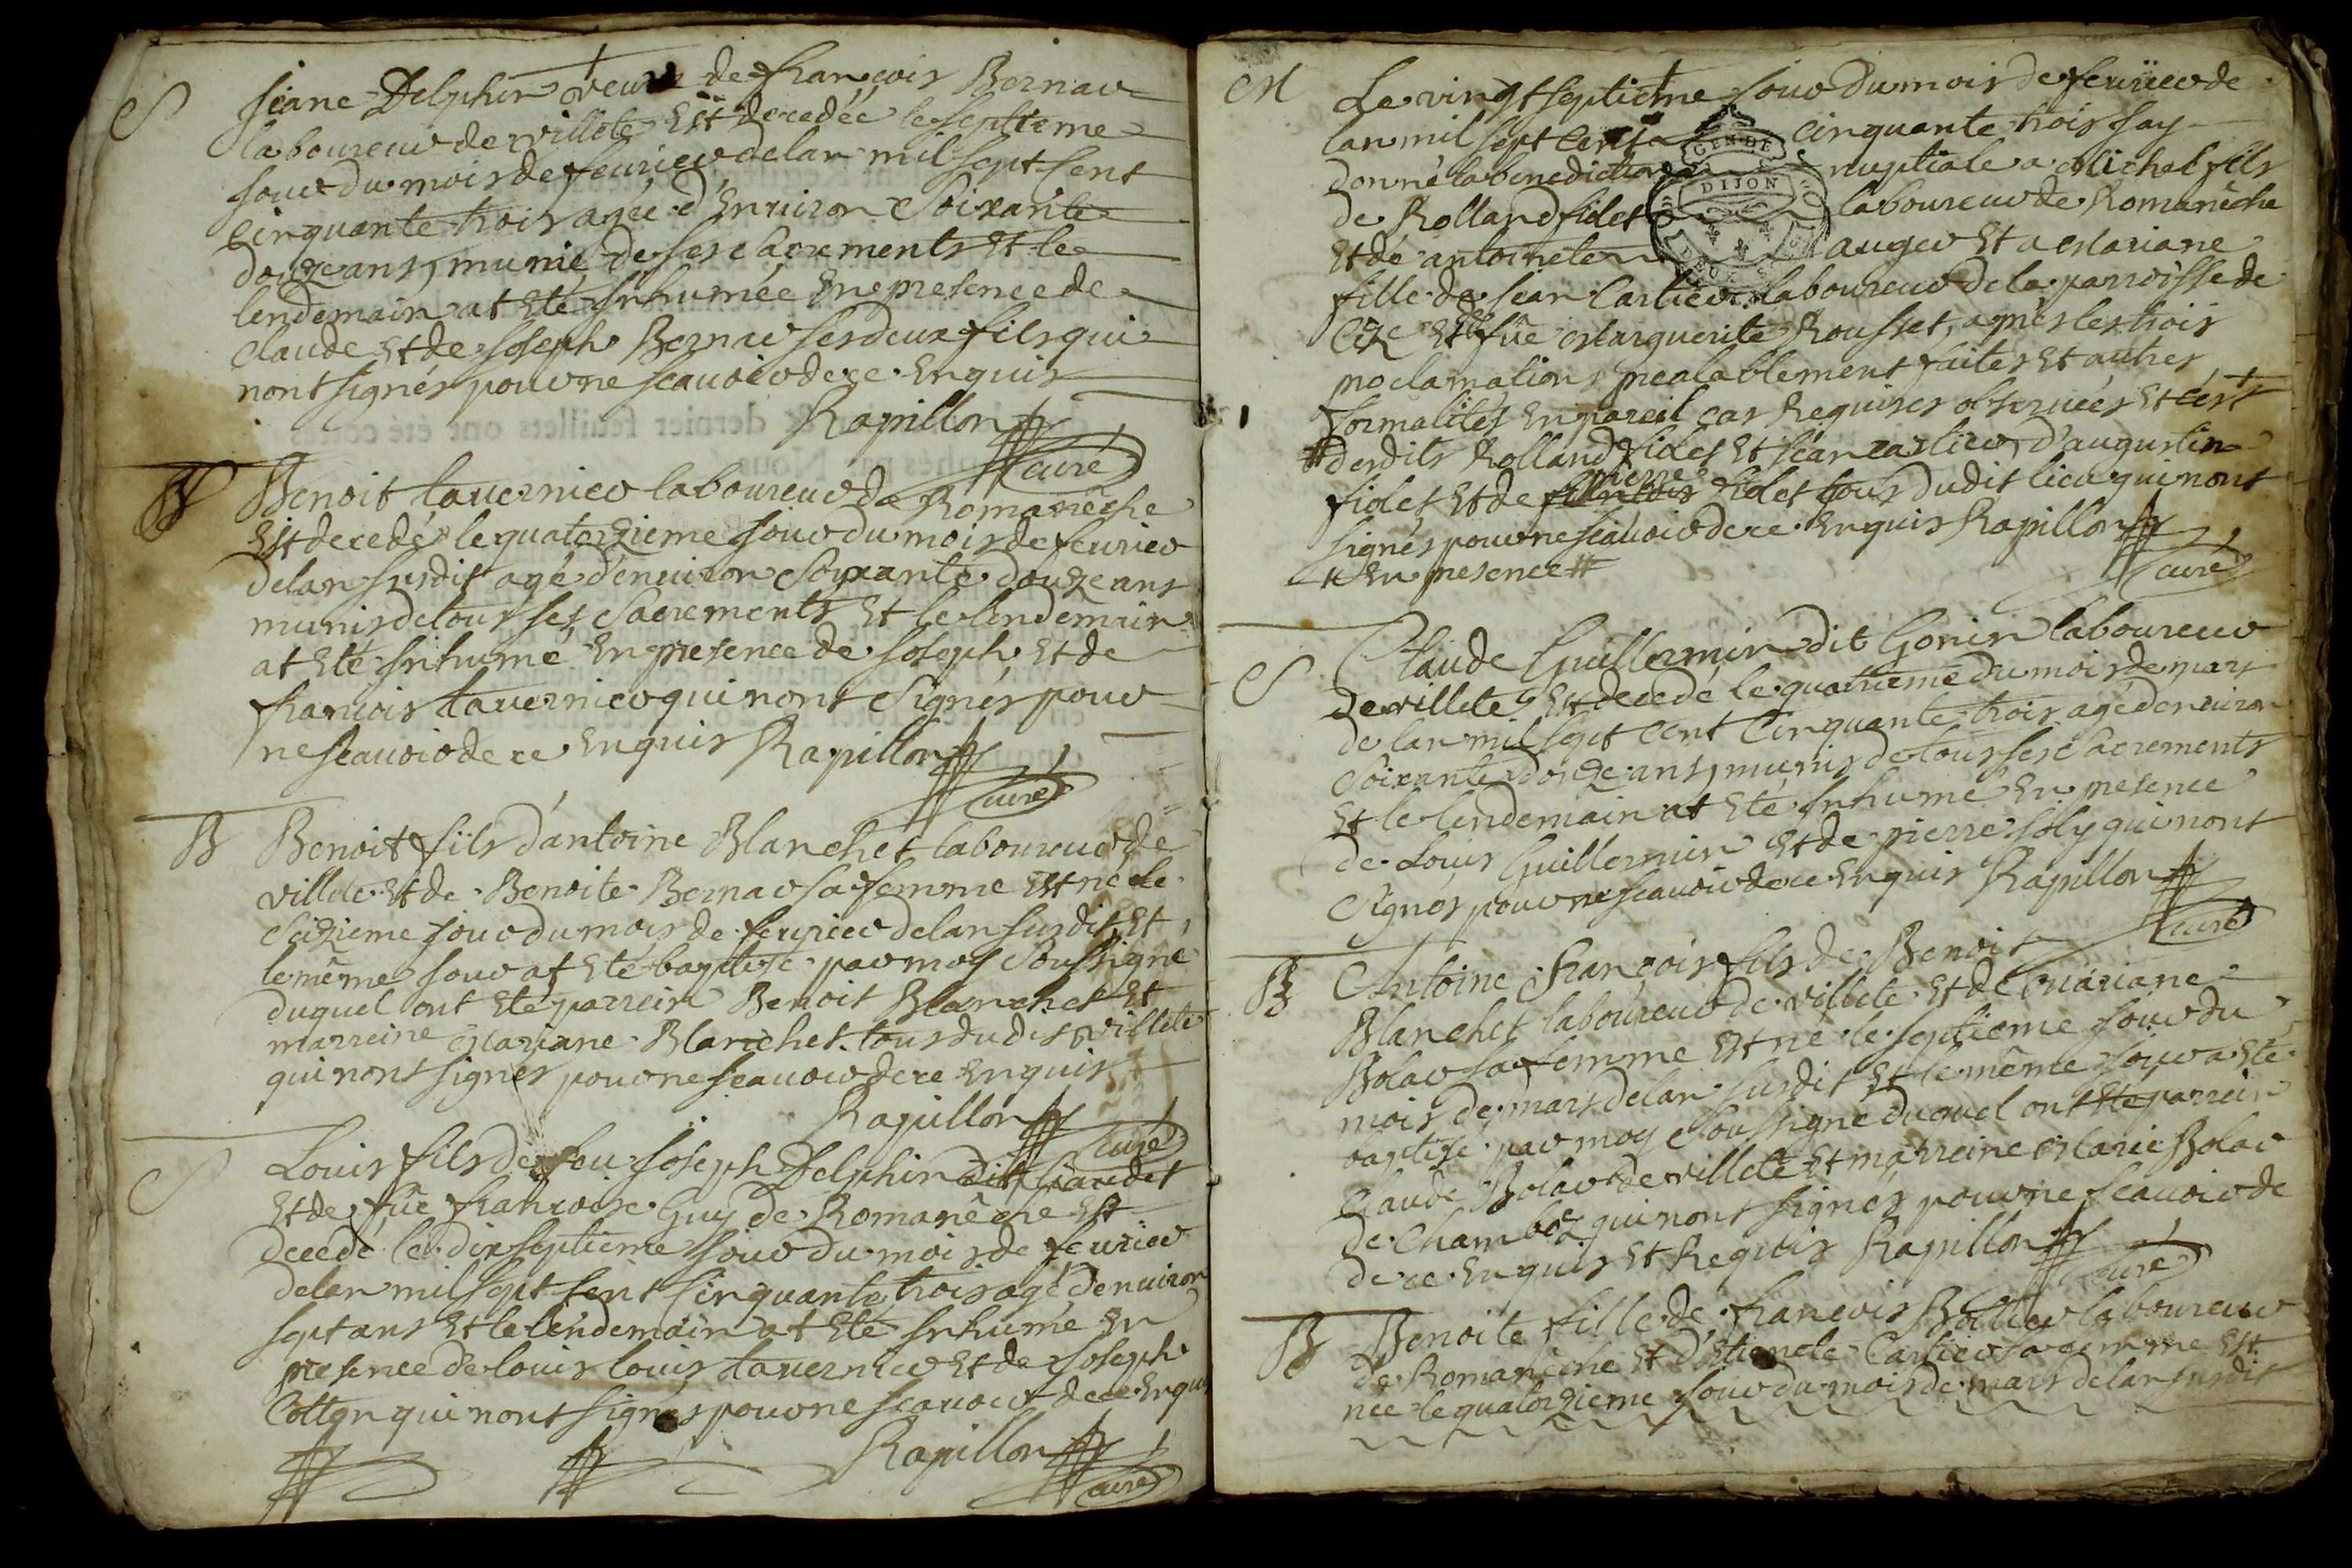 S Jeane Delphin veuve de francois Bernar
laboureur de villete Est decedée le septieme
jour du mois de feurier de lan mil sept Cent
Cinquante trois agée d'Enuiron Soixante
douze ans, munie de ses Sacrements Et le
lendemain at Eté Inhumée En presence de
Claude Et de Joseph Bernar ses deux fils qui
nont signés pour ne scauoir de ce Enquis
Rapillon
curé
Benoit tauernier laboureur de Romanêche
Est decedé le quatorzieme jour du mois de feurier
de lan susdit agé d'enuiron Soixante douze ans
munis de tous ses Sacrements Et le lendemain
at Eté Inhumé En presence de Joseph Et de
francois tauernier qui nont Signés pour
ne scauoir de ce Enquis Rapillon
curé
B Benoit fils d'antoine Blanchet laboureur de
villete Et de Benoite Bernar sa femme Est né le
Seizieme jour du mois de feurier de lan susdit Et
le même jour at Eté baptisé par moy Soussigné
duquel ont Eté parrein Benoit Blanchet Et
marreine Mariane Blanchet tous dudit villete
qui nont signés pour ne scauoir de ce Enquis
Rapillon
curé
S Louis fils de feu Joseph Delphin dit
Et de fûe francoise Guy de Romanêche Est
decedé le dix septieme jour du mois de feurier
de lan mil sept Cent Cinquante trois agé denuiron
sept ans Et le lendemain at Eté Inhumé En
presence de louis louis tauernier Et de Joseph
qui nont signés pour ne scauoir de ce Enquis
Rapillon
curé
M Le vingt septieme jour du mois de feurier de
lan mil sept Cents Cinquante trois jay
donné la benediction nuptiale a Michel fils
de Rolland fidet laboureur de Romanêche
Et de antoinete auger Et a Mariane
fille de Jean Carlier laboureur de la parroisse de
Et de fûe Marguerite Rousset, aprés les trois
proclamations prealablement faites Et autres
formalités En pareil cas Requises obseruées Et c'est
# desdits Rolland fidet Et Jean carlier, d'augustin
fidet Et de pierre fidet tous dudit lieu qui nont
signés pour ne scauoir de ce Enquis Rapillon
# En presence # curé
GEN. DE DIJON
S Claude Guillermin dit Gonin laboureur
de villete Est decedé le quatrieme du mois de mars
de lan mil sept Cent Cinquante trois agé denuiron
Soixante douze ans, munis de tous ses Sacrements
Et le lendemain at Eté Inhumé En presence
de Louis Guillermin Et de pierre Joly qui nont
Signés pour ne scauoir de ce Enquis Rapillon
curé
B Antoine François fils de Benoit
Blanchet laboureur de villete Et de Mariane
Bolar sa femme Est né le septieme jour du
mois de mars de lan susdit Et le même jour a Eté
baptisé par moy Soussigné duquel ont Eté parrein
Claude Bolar de villete Et marreine Marie Bolar
de Chamboz qui nont signés pour ne scauoir de
de ce Enquis Et Requis Rapillon
curé
B Benoite fille de francois laboureur
de Romanêche Et d'Etienete Carlier sa femme Est
née le quatorzieme jour du mois de mars de lan susdit